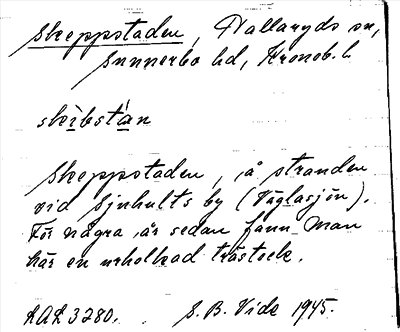 Skeppstaden, Hallaryds sn,
Sunnerbo hd, Kronob. l.
skìbstàn
Skeppstaden, å stranden
vid Sjöhults by (Väglasjön).
För några år sedan fann man
här en urholkad trästock.
LAL 3280. S. B. Vide 1945.